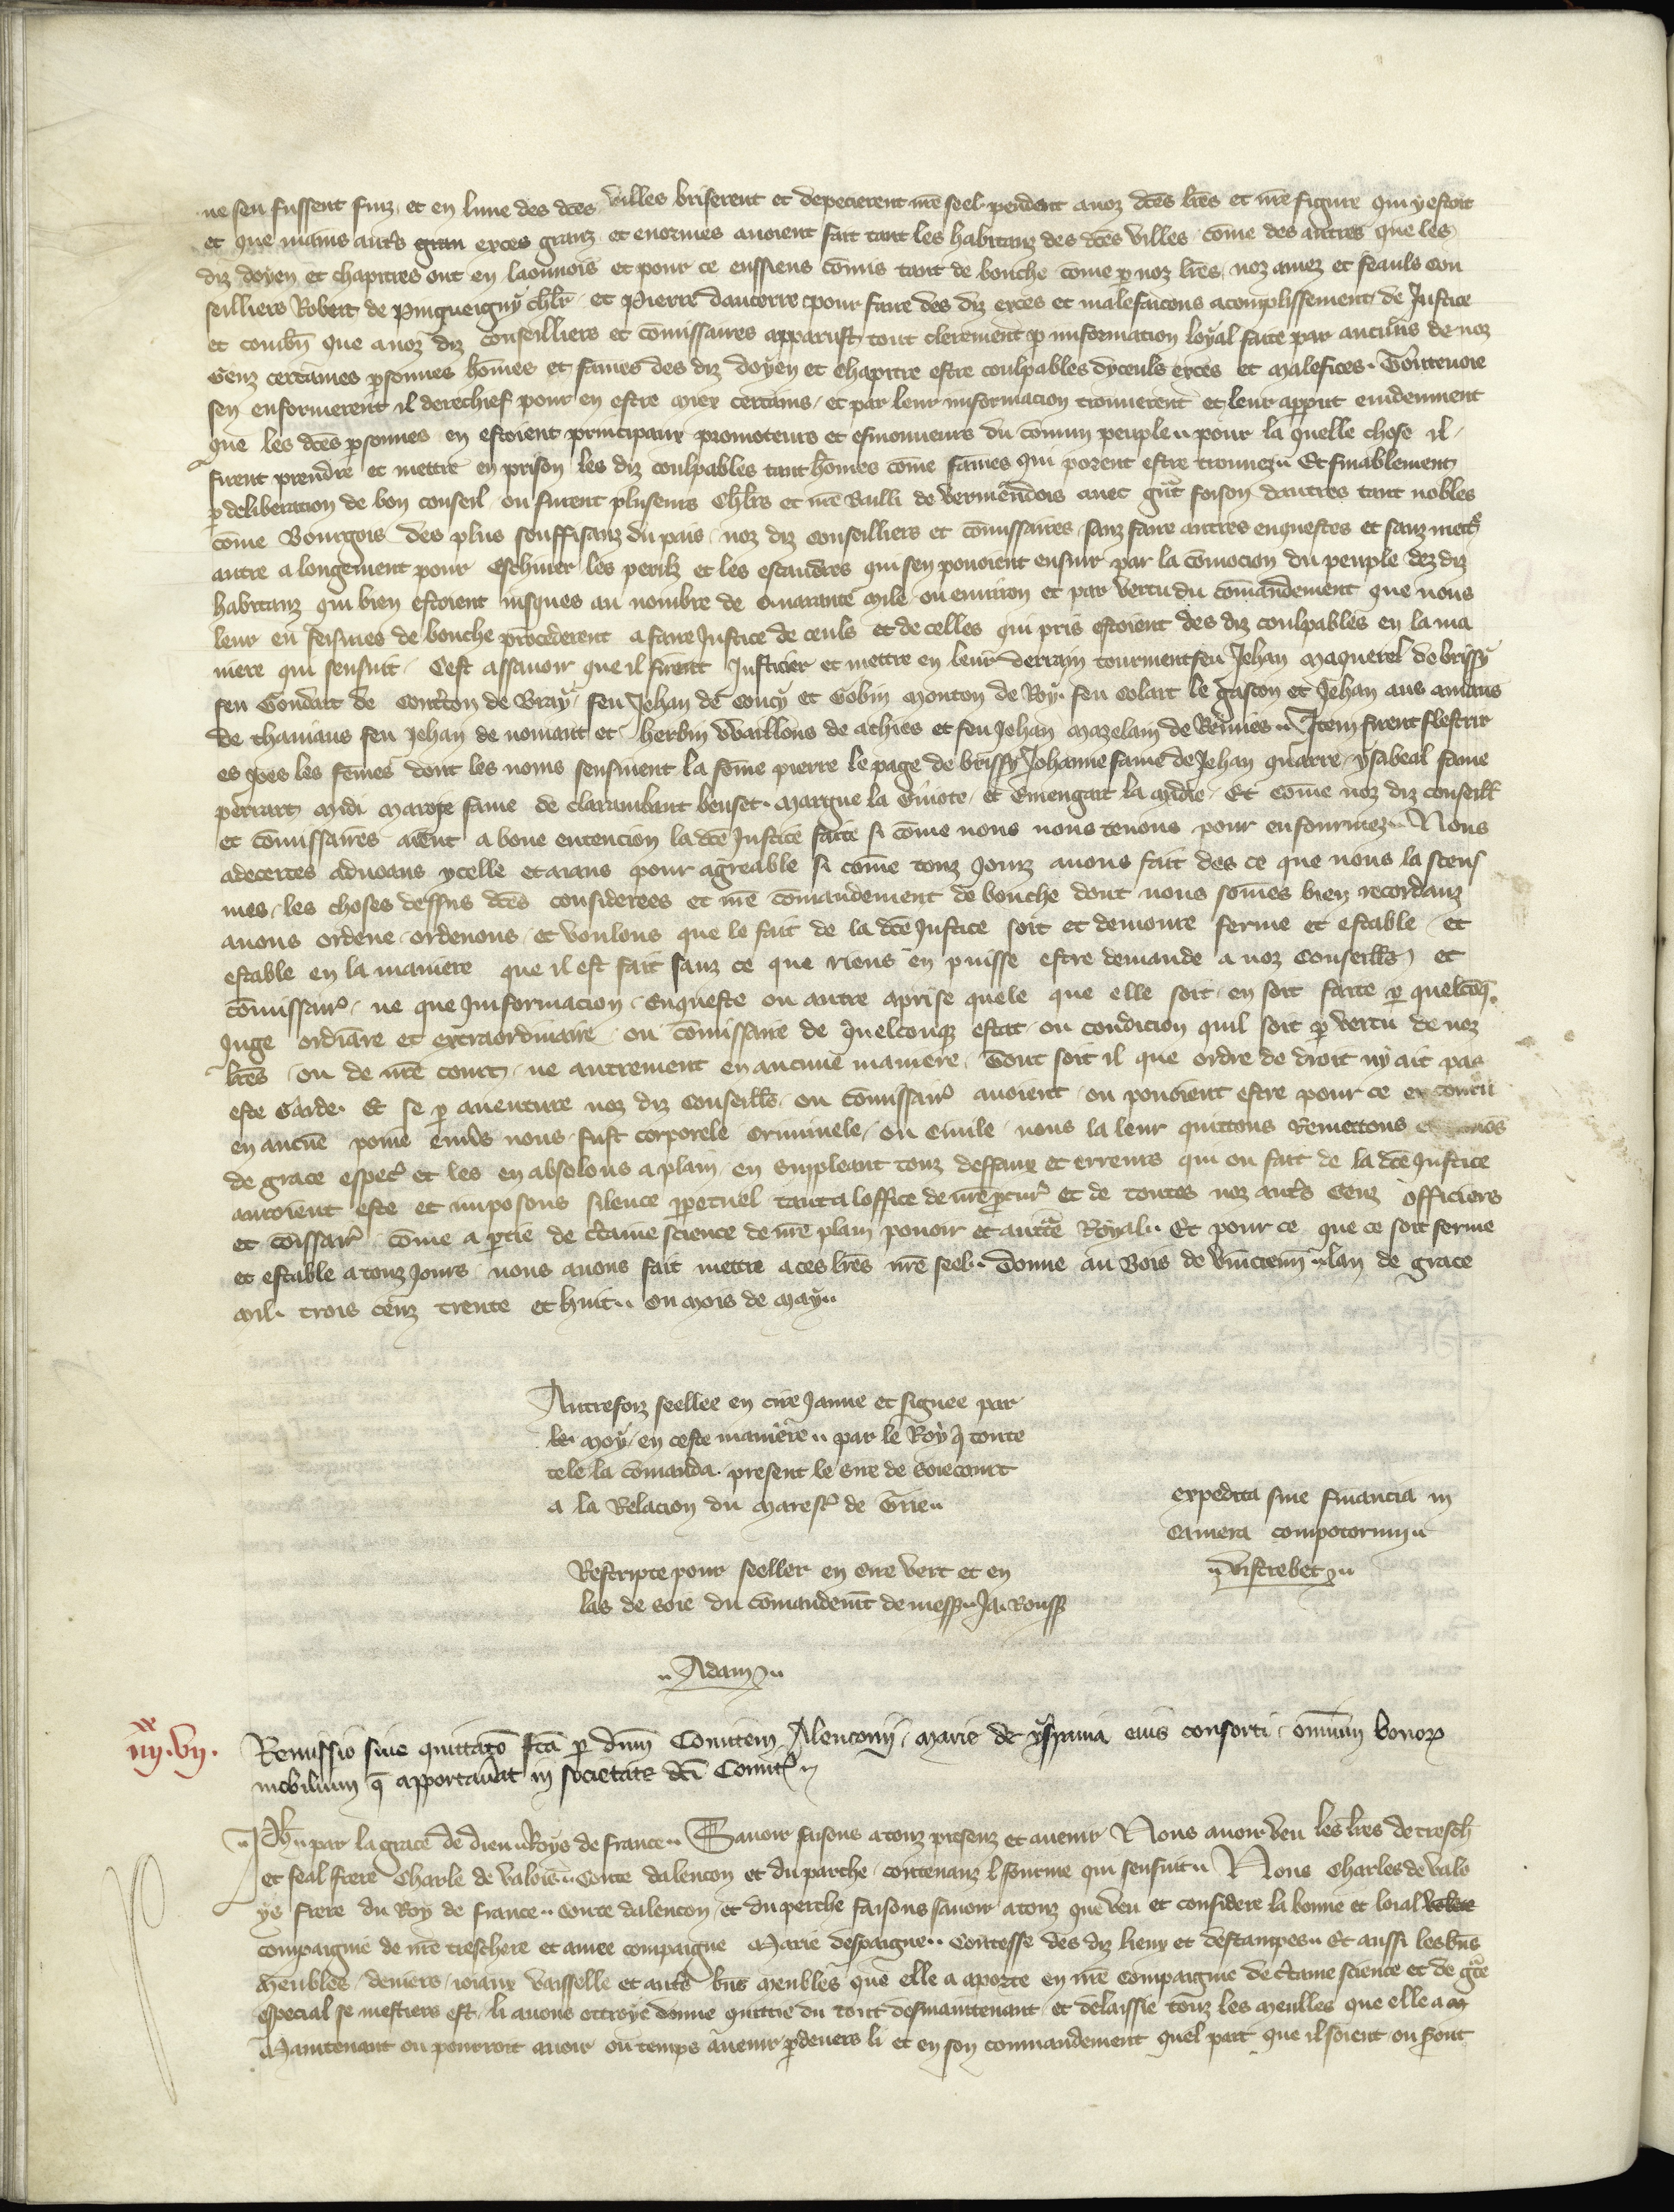 ne sen fussent fuiz. et en lune des dces villes briserent et depecierent nre seel pendent a noz dces lres et nre figure qui y estoit
et que mains autrs gran exces granz et enormes auoient fait tant les habitanz des dces villes come des autres que les
diz doyen et chapitres ont en laonnois et pour ce eussiens comis tant de bouche come p noz lres noz amez et feauls con
seilliers Robert de Pinqueigny chlr et Pierre daucerre pour faire des diz exces et malefaicons acomplissement de Justice
et combn que a noz diz conseilliers et comissaires apparust tout clerement p informacion loyal faite par aucuns de noz
Genz certaines psonnes homes et fames des diz doyen et chapitre estre coulpables dyceuls exces et malefices. Toutevoie
sen enformerent il derechief pour en estre miex certains et par leur informacion trouuerent et leur apput euidenment
que les dces psonnes en estoient principaux promoteurs et esmouueurs du comun peuple pour la quelle chose il
firent prendre et mettre en prison les diz coulpables tant homes come fames qui porent estre trouuez Et finablement
p deliberacion de bon conseil ou furent pluseurs Chlrs et nre Bailli de Vermendois auec gnt foison dautres tant nobles
come Bourgois des plus souffisanz du pais noz diz conseilliers et comissaires sanz faire autres enquestes et sanz mettr
autre alongement pour eschiuer les perilz et les escandres qui sen pouoient ensuir par la comocion du peuple dez diz
habitanz qui bien estoient iusques au nombre de Quarante Mile ou enuiron et par vertu du comandement que nous
leur en feismes de bouche procederent a faire Justice de ceuls et de celles qui pris estoient des diz coulpables en la ma
niere qui sensuit. Cest assauoir que il firent Justicier et mettre en leur derrain tourment feu Jehan Maquerel de brissy
feu Goudart de Courton de Bray feu Jehan de Coucy et Gobin Mouton de Roy feu Colart le gascon et Jehan aus amans
de chaniaus feu Jehan de nouiant et herbin Waillons de athies et feu Jehan Mazelain de Bruies Item firent flestrir
es joes les femes dont les noms sensiuent la fome pierre le page de brissy Johanne fame de Jehan quarre ysabeal fame
perrart midi Maroie fame de clarambaut beuset. Margue la Guiote et Emengart la Mdrie. Et come noz diz conseill
et comissaires aient a bone entencion la dce Justice faite si come nous nous tenons pour enfourmez Nous
adecertes aduoans ycelle et aians pour agreable si come touz jourz auons fait des ce que nous la sceus
mes les choses dessus dces considerees et nre comandement de bouche dont nous somes bien recordanz
auons ordene ordenons et voulons que le fait de la dce Justice soit et demoure ferme et estable et
estable en la maniere que il est fait sanz ce que riens en puisse estre demande a noz Conseills et
comissairs ne que Informacion Enqueste ou autre aprise quele que elle soit en soit faite p quelconq
Juge ordiaire et extraordinaire ou comissaire de quelconque estat ou condicion quil soit p vertu de noz
lres ou de nre court ne autrement en aucune maniere. Tout soit il que ordre de droit ny ait pas
este Garde. Et se p auenture noz diz Conseills ou comissairs auoient ou pouoient estre pour ce encouru
en aucune poine enuers nous fust corporele Criminele ou Ciuile nous la leur quittons Remettons
de grace especl et les en absolons a plain en suppleant touz deffaux et erreurs qui ou fait de la dce Justice
auroient este et imposons silence ppetuel tant a loffice de nre pcur et de toutes noz autrs Genz officiers
et comissairs come a partie de certaine science de nre plain pouoir et auctte Royal Et pour ce que ce soit ferme
et estable a touz Jours nous auons fait mettre a ces lres nre seel. Donne au Bois de vincienn lan de grace
Mil trois cenz trente et huit ou mois de May
Autrefoiz seellee en cire Jaune et signee par
le Moy en ceste maniere par le Roy q toute
tele la comanda present le sire de Soiecourt
a la Relacion du Maresc de Trie
Rescripte pour seeller en cire vert et en
las de soie du comandemt de mess Ja. Rouss
Adam
expedita sine financia in
Camera compotorum
Vistrebet
iiii xx vii.
Remissio siue quittaco fca p dnm Comitem Alenconij Marie de yspania eius consorti omnium bonor
mobilium q apportauerat in societate dci Comit
Ph par la grace de dieu Roys de france Sauoir faisons a touz presenz et auenir Nous auoir veu les lres de tresch
et feal frere Charle de valois Conte dalencon et du parche contenanz la fourme qui sensuit Nous Charles de valo
ys frere du Roy de france conte dalencon et du perche faisons sauoir a touz que veu et considere la bonne et loial
compaignie de nre treschere et amee compaigne Marie despaigne Contesse des diz lieux et destampes Et aussi les bns
Meubles deniers ioiaux vaisselle et autrs bns meubles que elle a aporte en nre compaignie de certaine science et de gce
especial se mestiers est li auons ottroye donne quittie du tout desmaintenant et delaissie touz les meulles que elle a m
Maintenant ou pourroit auoir ou temps auenir pdeuers li et en son commandement quel part que il soient ou seront